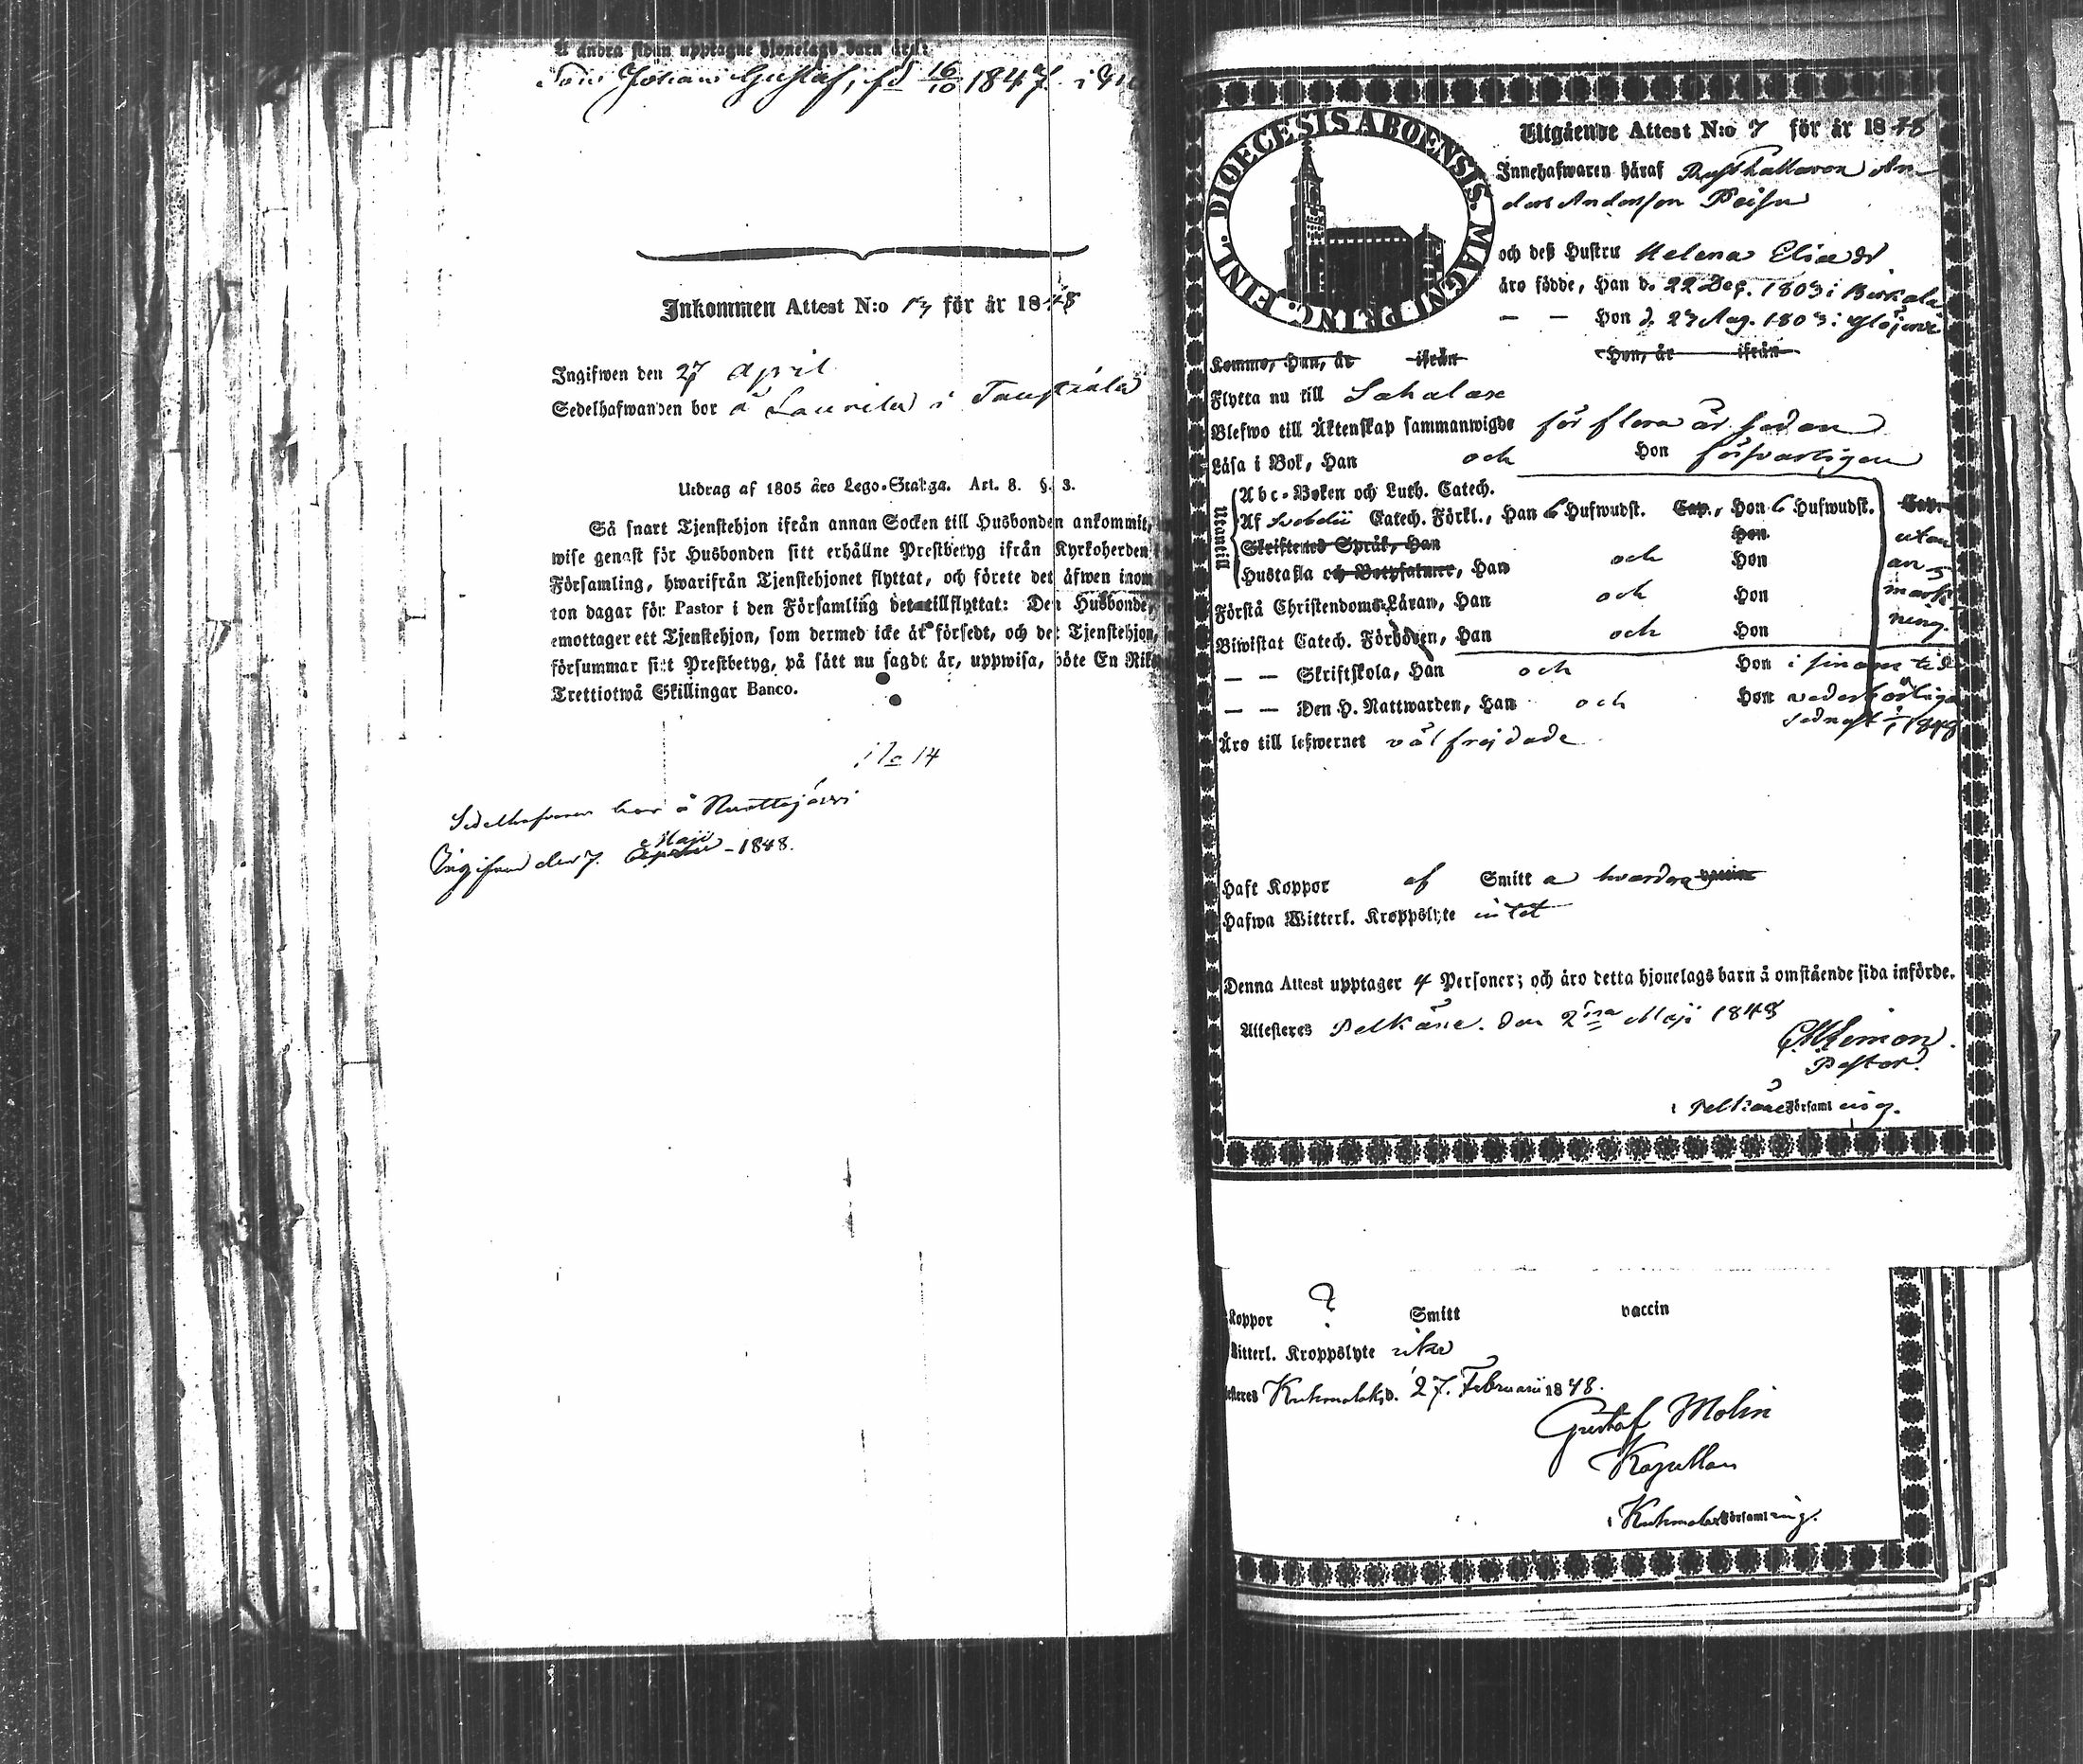 å andra sidan upptagne hjonelags barn äro:
Son Johan Gustaf, föd 16/10 1847. i
Inkommen Attest N:o 13 för år 1848
Ingifwen den 27 April
Sedelhafwanden bor å Laurila i Taustiala
Utdrag af 1805 års Lego-Stadga. Art. 8. §. 3.
Så snart Tjenstehjon ifrån annan Socken till Husbonden ankommit,
wise genast för Husbonden sitt erhållne Prestbetyg ifrån Kyrkoherden
Församling, hwarifrån Tjenstehjonet flyttat, och förete det äfwen inom
ton dagar för Pastor i den Församling det tillflyttat: Den Husbonde,
emottager ett Tjenstehjon, som dermed icke är försedt, och det Tjenstehjon,
försummar sitt Prestbetyg, på sätt nu sagdt är, uppwisa, böte En Riks
Trettiotwå Skillingar Banco.
No 14
Sedelhafvaren bor å
Ingifven den 7. Maji - 1848.
DIOECESIS ABOENSIS. MAGNI PRINC. FINL.
Utgående Attest N:o 7 för år 1848
Innehafwaren häraf Rusthållaren An-
ders Andersson Peisu
och deß Hustru Helena Eliaedr
äro födde, Han d. 22 Dec. 1803 i Birkala
— — Hon d. 23 Aug. 1803 i
Kommo, Han, år ifrån Hon, år ifrån
Flytta nu till Sahalax
Blefwo till Äktenskap sammanwigde för flera år sedan
Läsa i Bok, Han och Hon försvarligen
Utantill
Abc-Boken och Luth. Catech.
Af Svebelii Catech. Förkl., Han 6 Hufwudst. Cap., Hon 6 Hufwudst. Cap.
Skriftenes Språk, Han Hon utan
Hustafla och Botpsalmer, Han och Hon an-
Förstå Christendoms-Läran, Han och Hon märk
Biwistat Catech. Förhören, Han och Hon ning.
— — Skriftskola, Han och Hon i sinom tid
— — Den H. Nattwarden, Han och Hon vederbörligen
sednast 1848
Äro till lefwernet välfrejdade
Haft Koppor af Smitt a hvardera vaccin
Hafwa Witterl. Kroppslyte intet
Denna Attest upptager 4 Personer; och äro detta hjonelags barn å omstående sida införde.
Attesteres Pelkäne. den 2dra Maji 1848
Pastor
i Pelkäne Församling.
Koppor ? Smitt vaccin
Witterl. Kroppslyte icke
Attesteres Kuhmalaks, d. 27. Februarii 1848.
Gustaf Molin
Kapellan
i Kuhmalaks Församling.